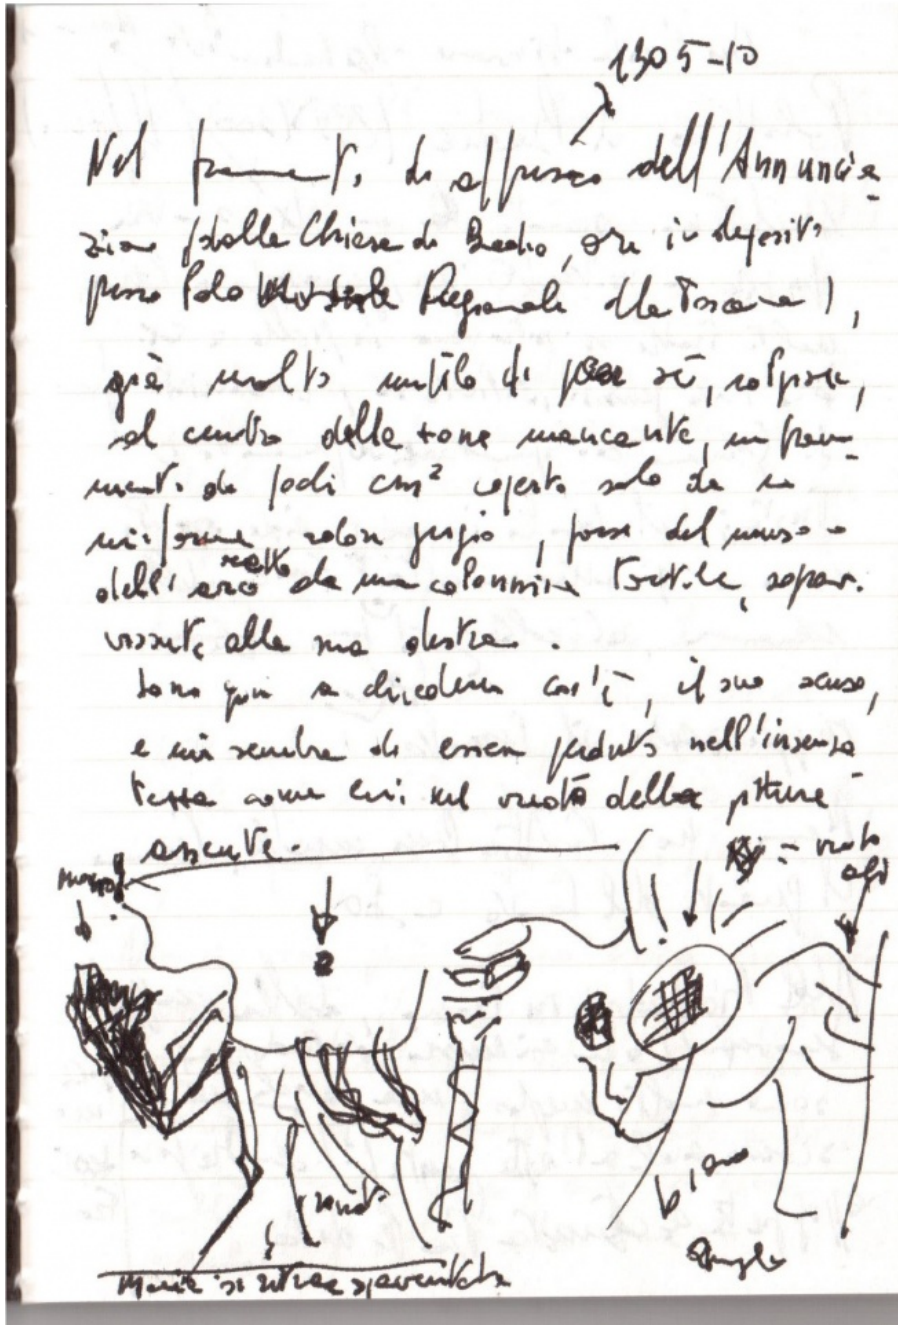 1305-10
Nel frammento di affresco dell'Annuncia-
zione (dalla Chiesa di , ora in deposito
presso Polo Museale Regionale della Toscana),
già molto mutilo di per sé, colpisce,
al centro della zona mancante, un fram-
mento di pochi cm² coperto solo da un
uniforme colore grigio, forse del
dell'arco retto da una colonnina tortile, soprav-
vissuta alla sua destra.
Sono qui a chiedermi cos'è, il suo senso,
e mi sembra di essermi perduto nell'insensa-
tezza come lui nel vuoto della pittura
assente
vuoto
ali
vuoto
Maria si ritrae spaventata